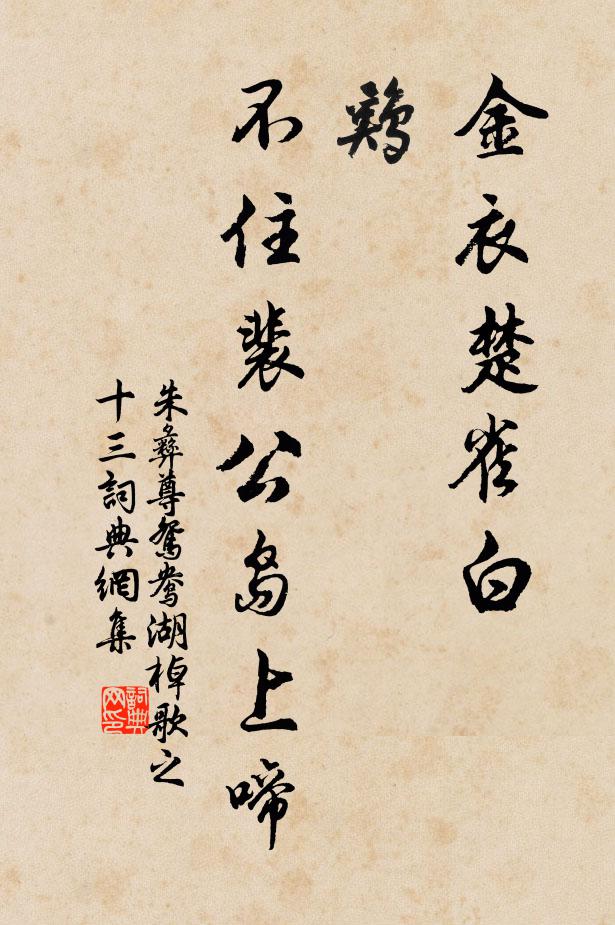 金衣楚雀白
鷄
不住裴公島上啼
朱彝尊鴛鴦湖棹歌之
十三詞典網集
詞典
网印